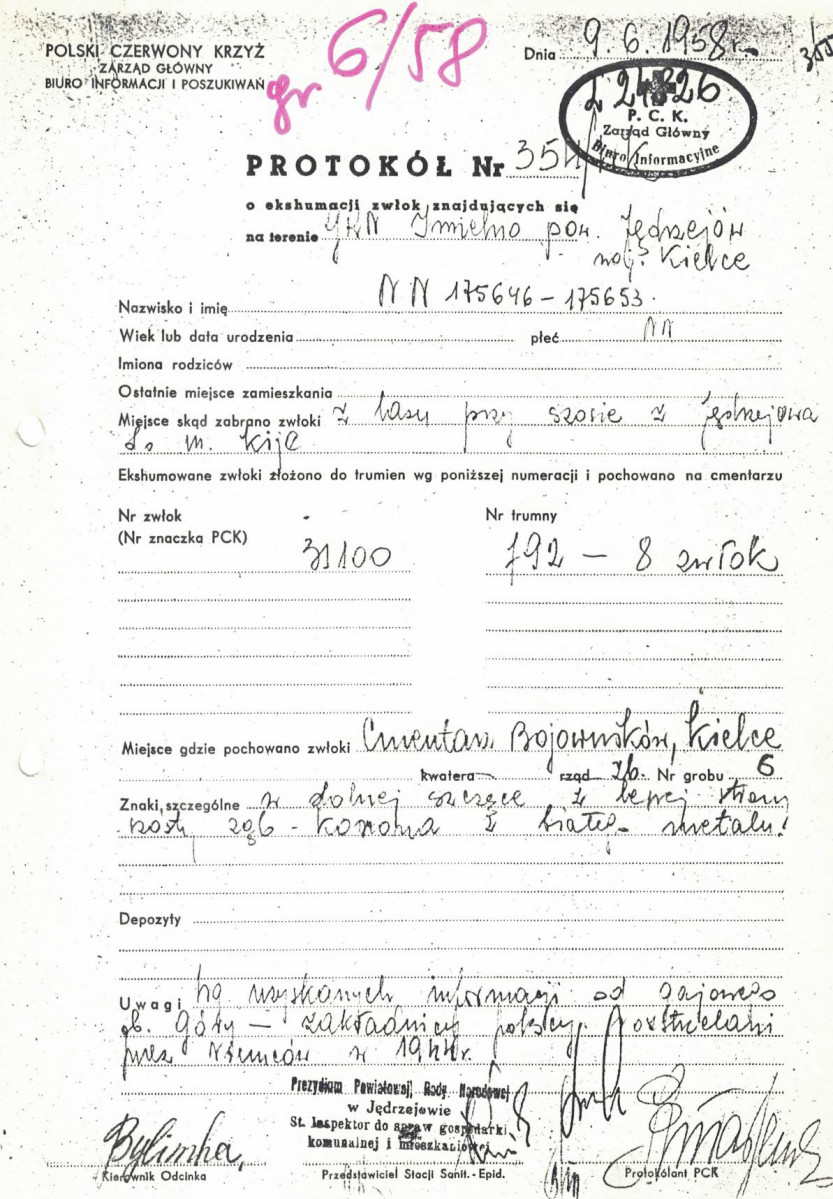 gr 6/58
POLSKI CZERWONY KRZYŻ
ZARZĄD GŁÓWNY
BIURO INFORMACJI I POSZUKIWAŃ
Dnia 9. 6. 1958 r.
L 24826
P. C. K.
Zarząd Główny
Biuro Informacyjne
PROTOKÓŁ Nr 354/
o ekshumacji zwłok znajdujących się
na terenie GRN Imielno pow. Jędrzejów
woj. Kielce
Nazwisko i imię NN 175646 - 175653.
Wiek lub data urodzenia płeć NN
Imiona rodziców
Ostatnie miejsce zamieszkania
Miejsce skąd zabrano zwłoki z lasu przy szosie z Jędrzejowa
do m. Kije
Ekshumowane zwłoki złożono do trumien wg poniższej numeracji i pochowano na cmentarzu
Nr zwłok Nr trumny
(Nr znaczka PCK) 31100 792 - 8 zwłok
Miejsce gdzie pochowano zwłoki Cmentarz Bojowników, Kielce
kwatera rząd Nr grobu 6
Znaki szczególne w dolnej szczęce z lewej strony
ząb - korona z białego metalu.
Depozyty
Uwagi wg uzyskanych informacji od gajowego
ob. Góry - zakładnicy polscy rozstrzelani
przez Niemców w 1944r.
Prezydium Powiatowej Rady Narodowej
w Jędrzejowie
St. Inspektor do spraw gospodarki
komunalnej i mieszkaniowej
Kierownik Odcinka Przedstawiciel Stacji Sanit.-Epid. Protokólant PCK